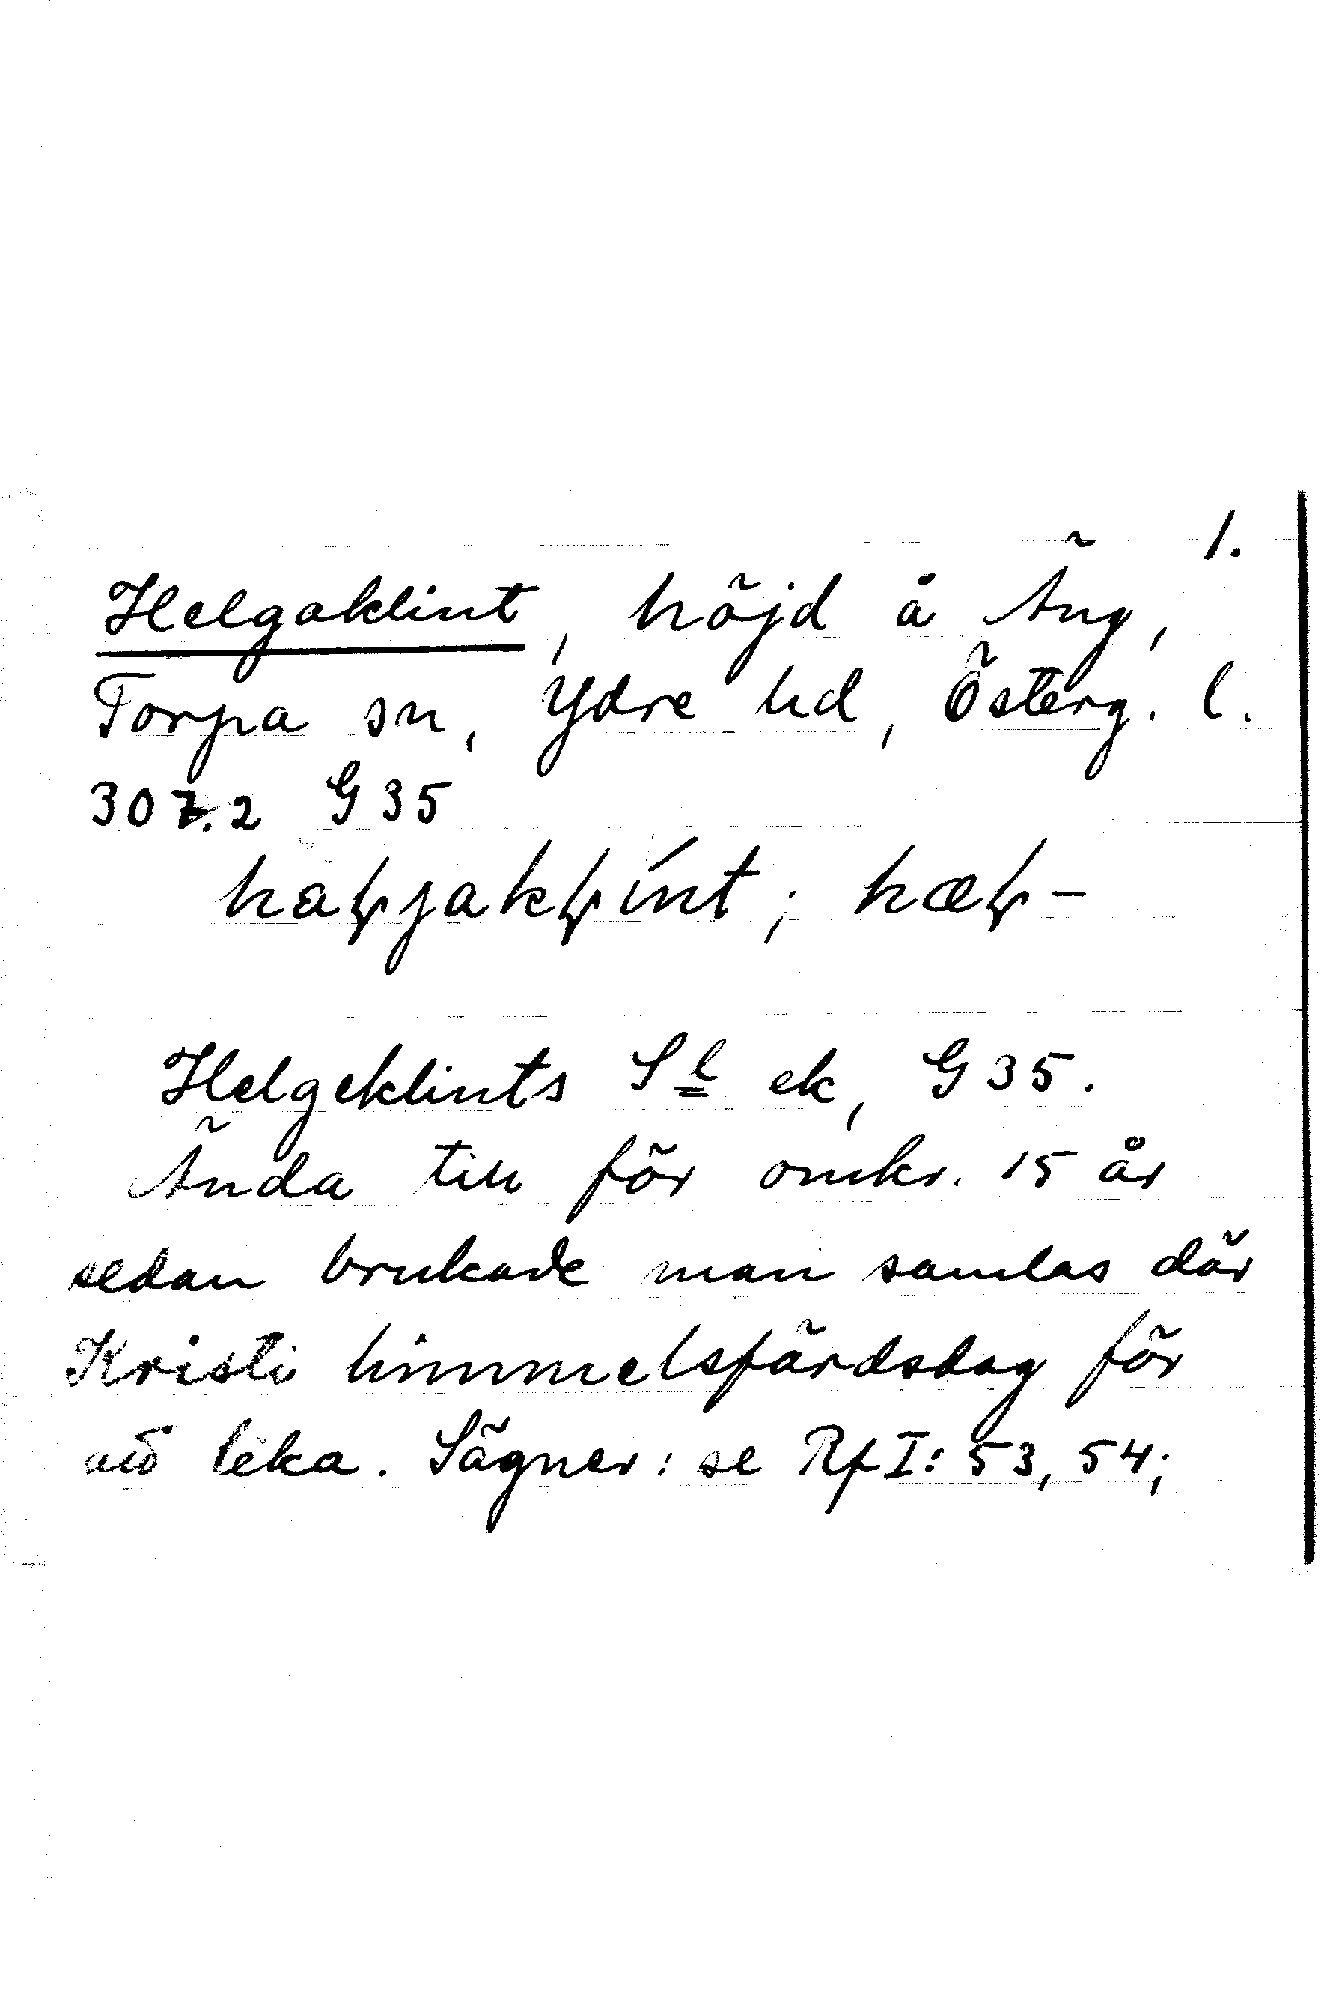 1.
Helgaklint, höjd å Äng,
Torpa sn, Ydre hd, Österg. l.
307.2 G35
haɭjakɭínt; hæɭ-
Helgeklints Sl ek, G35.
Ända till för omkr. 15 år
sedan brukade man samlas där
Kristi himmelsfärdsdag för
att leka. Sägner: se Rf I: 53, 54;